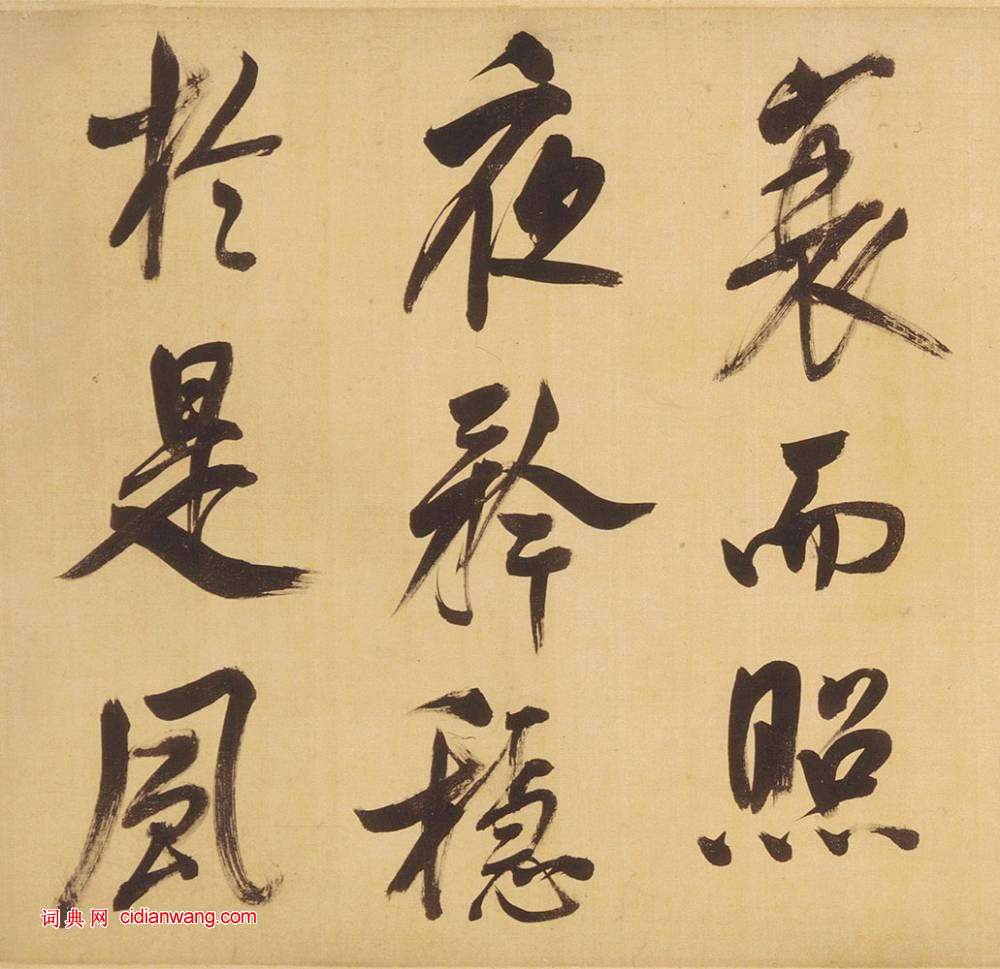 裘而照
夜矜穩
於是風
词典网 cidianwang.com